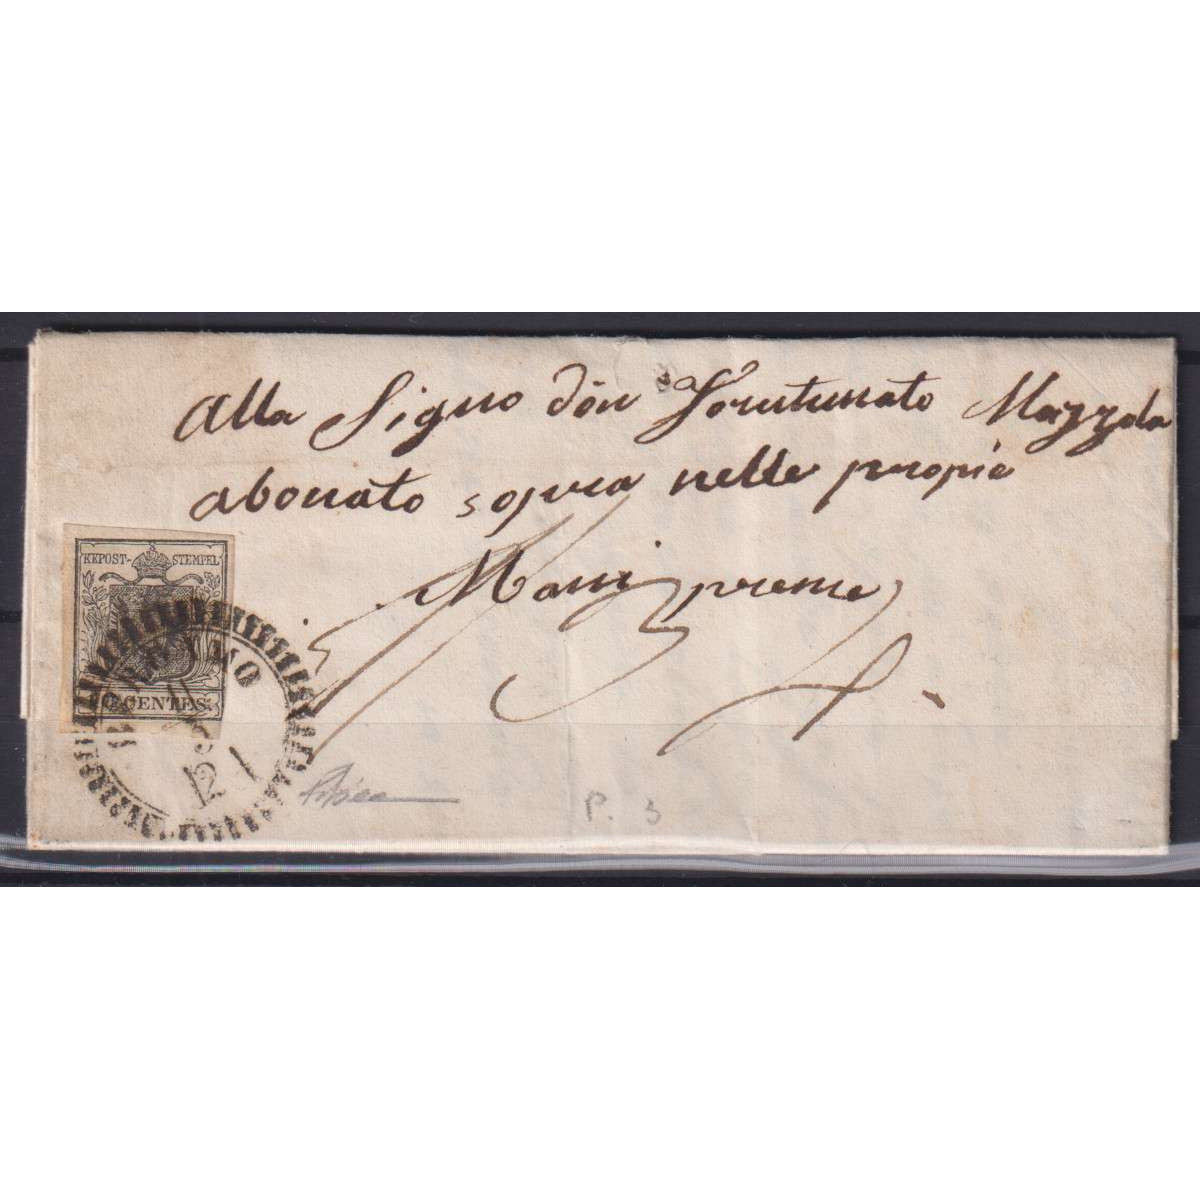 Alla Signo dòn Forutunato Mazzola
abonato sopra nelle propie
Mani preme
KKPOST- STEMPEL
CENTES.
P. 3